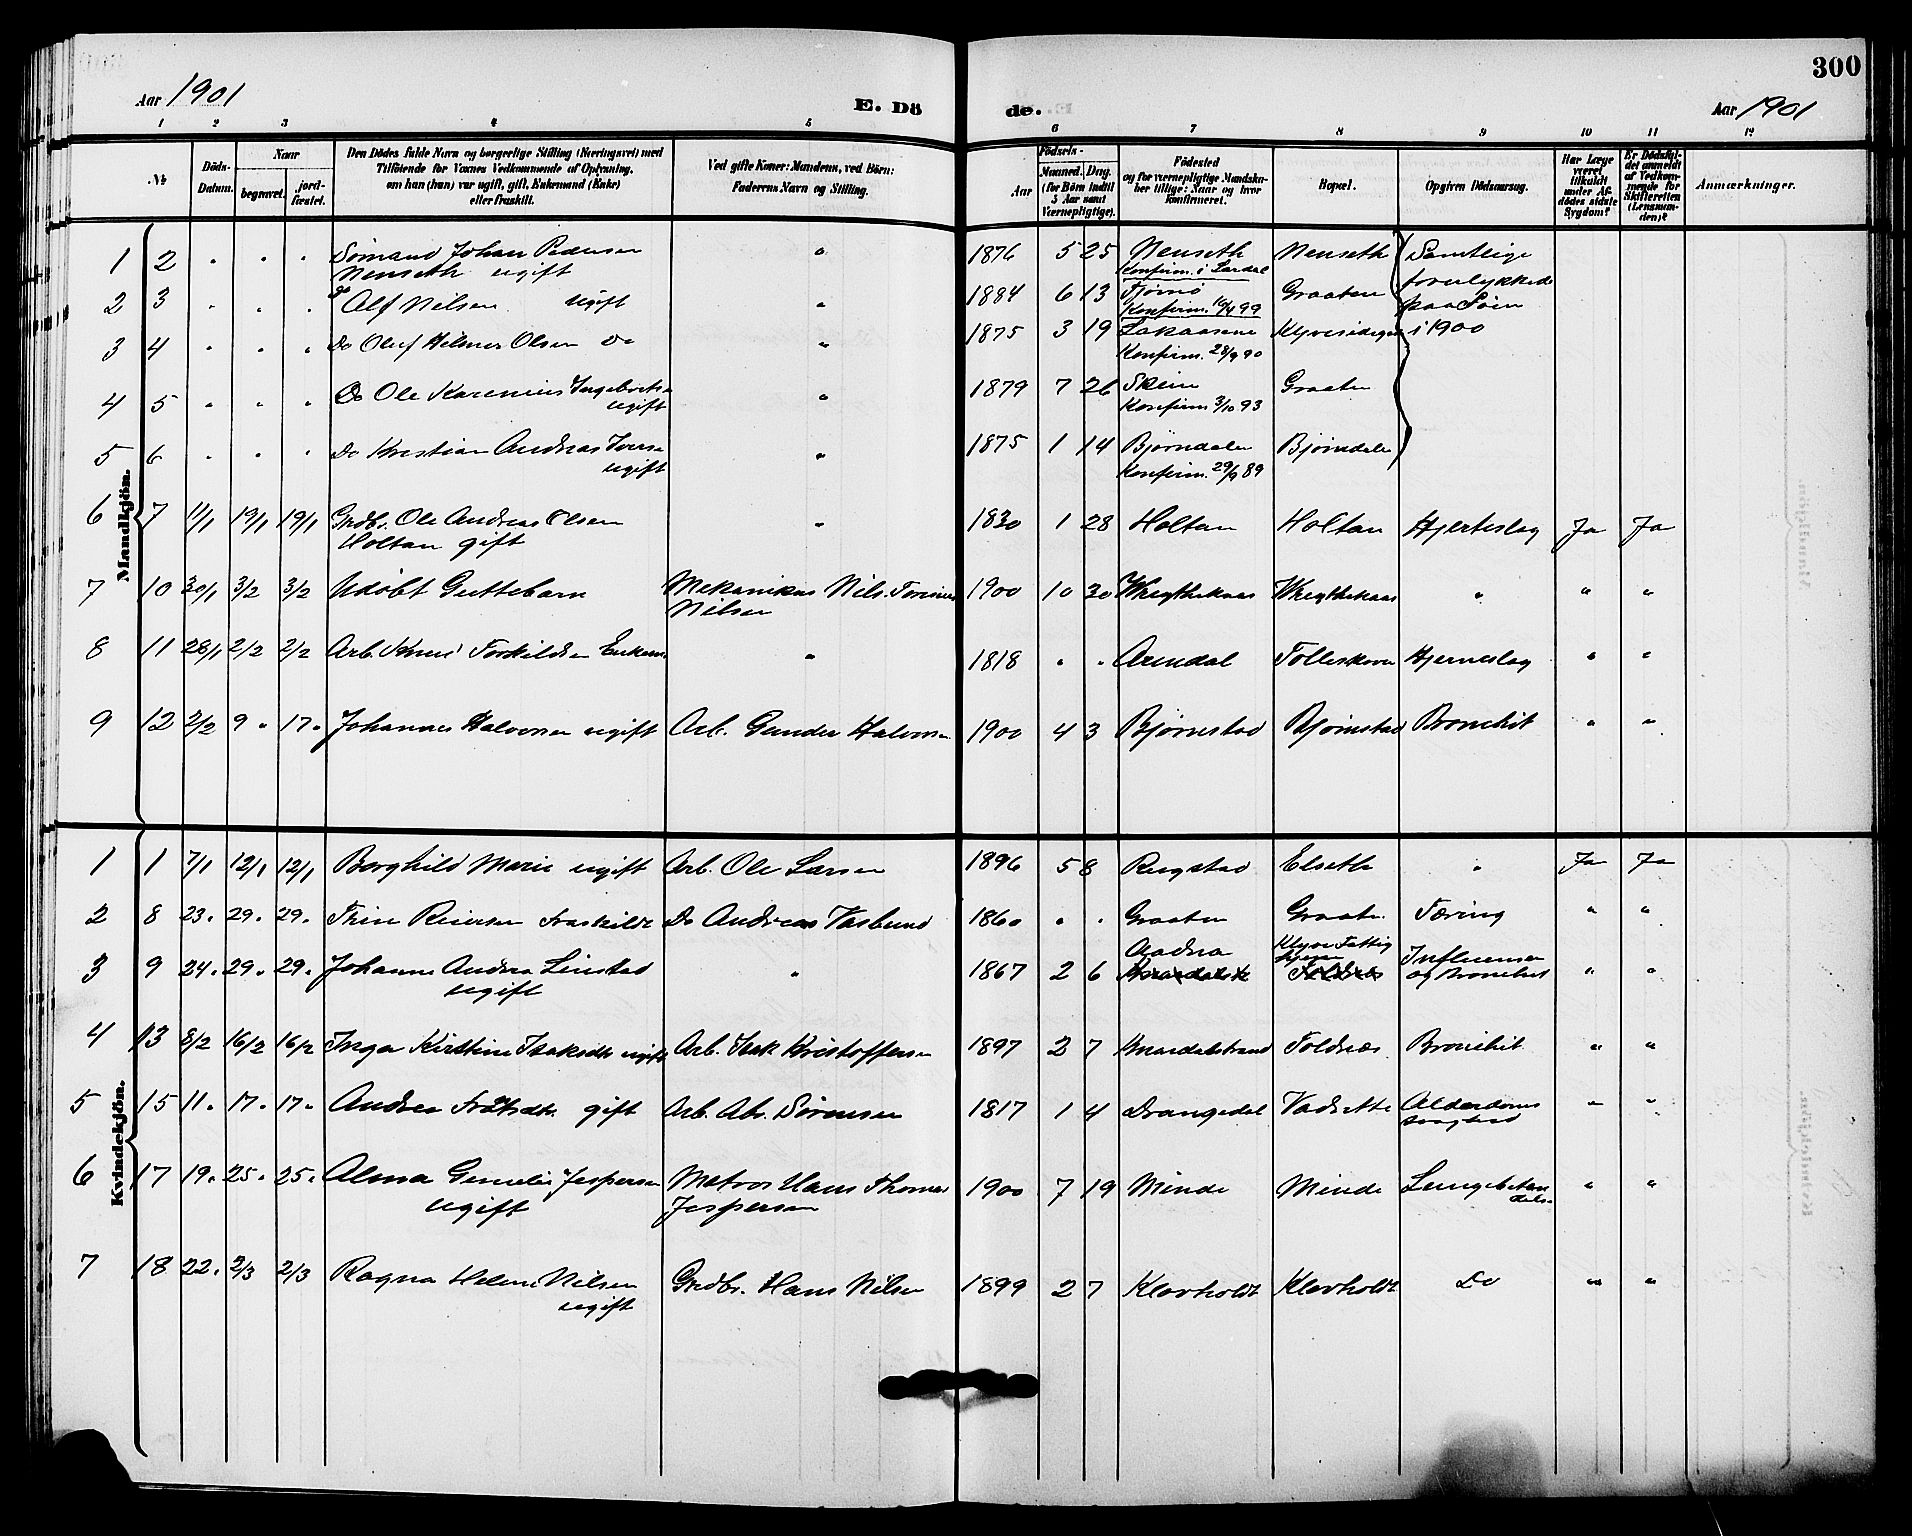 300
Aar 1901 E. Dö de. Aar 1901
1 2 3 4 5 6 7 8 9 10 11 12
№ Döds-Datum. Naar begravet. jordfæstet. Den Dödes fulde Navn og borgerlige Stilling (Næringsvei) med Tilföiende for Voxnes Vedkommende af Oplysning, om han (hun) var ugift, gift, Enkemand (Enke) eller fraskilt. Ved gifte Koner: Mandens, ved Börn: Faderens Navn og Stilling. Aar Födsels- Maaned. Dag. (for Börn indtil 5 Aar samt Værnepligtige). Födested og for værnepligtige Mandskaber tillige: Naar og hvor konfirmeret. Bopæl. Opgiven Dödsaarsag. Har Læge været tilkaldt under Afdödes sidste Sygdom? Er Dödsfaldet anmeldt af Vedkommende for Skifteretten (Lensmanden)? Anmærkninger.
Mandkjön.
1 2 " " " Sømand Johan Pedersen " 1876 5 25 Nenseth Nenseth Samtlige
Nenseth ugift Konfirm. i Lardal forulykkede
2 3 " " " Alf Nilsen ugift " 1884 6 13 Tjømø Graaten paa Søen
Konfirm. 16/4 99
3 4 " " " Do Oluf Hilmer Olsen Do " 1875 3 19 Klyvesidegen i 1900
Konfirm. 28/9 90
4 5 " " " Do Ole Karenius Ingebretsen " 1879 7 26 Skien Graaten
ugift Konfirm 3/10 93
5 6 " " " Do Kristian Andreas Iversen " 1875 1 14 Bjørndalen Bjørndalen
ugift Konfirm. 29/9 89
6 7 11/1 19/1 19/1 Grdbr. Ole Andreas Olsen " 1830 1 28 Holtan Holtan Hjerteslag Ja Ja
Holtan gift
7 10 30/1 3/2 3/2 Udøbt Guttebarn Mekanikus Nils 1900 10 30 " " "
Nilsen
8 11 28/1 2/2 2/2 Arb. Torkildsen Enkem. " 1818 " " Arendal Follaskoven Hjerneslag " "
9 12 2/2 9 " 17 " Johannes Halvorsen ugift Arb. Gunder Halvorsen 1900 4 3 Bjørnstad Bjørnstad Bronchit " "
Kvindekjön.
1 1 7/1 12/1 12/1 Borghild Marie ugift Arb. Ole Larsen 1896 5 8 Rugstad Elseth " Ja Ja
2 8 23. 29. 29. Trine Reiersen Fraskildt Do Andreas Vasbund 1860 " " Graaten Graaten Tæring " "
Aadna Klyve Fattig Influensa
3 9 24. 29. 29. Johanne Andrea Linstad " 1867 2 6 og Bronchit " "
ugift
4 13 8/2 16/2 16/2 Inga Kirstine Isaksdtr ugift Arb. Isak Kristoffersen 1897 2 7 Knardalstrand Foldnæs Bronchit " "
5 15 11. 17. 17. Andrea gift Arb. Abr. Sørensen 1817 1 4 Drangedal Vadrette Alderdoms " "
svaghed
6 17 19. 25. 25. Alma Jespersen Matros Hans Thomas 1900 7 19 Minde Minde Lungebetæn " "
ugift Jespersen delse
7 18 22. 2/3 2/3 Ragna Helene Nilsen Grdbr. Hans Nilsen 1899 2 7 Klovholdt Klovholdt Do " "
ugift